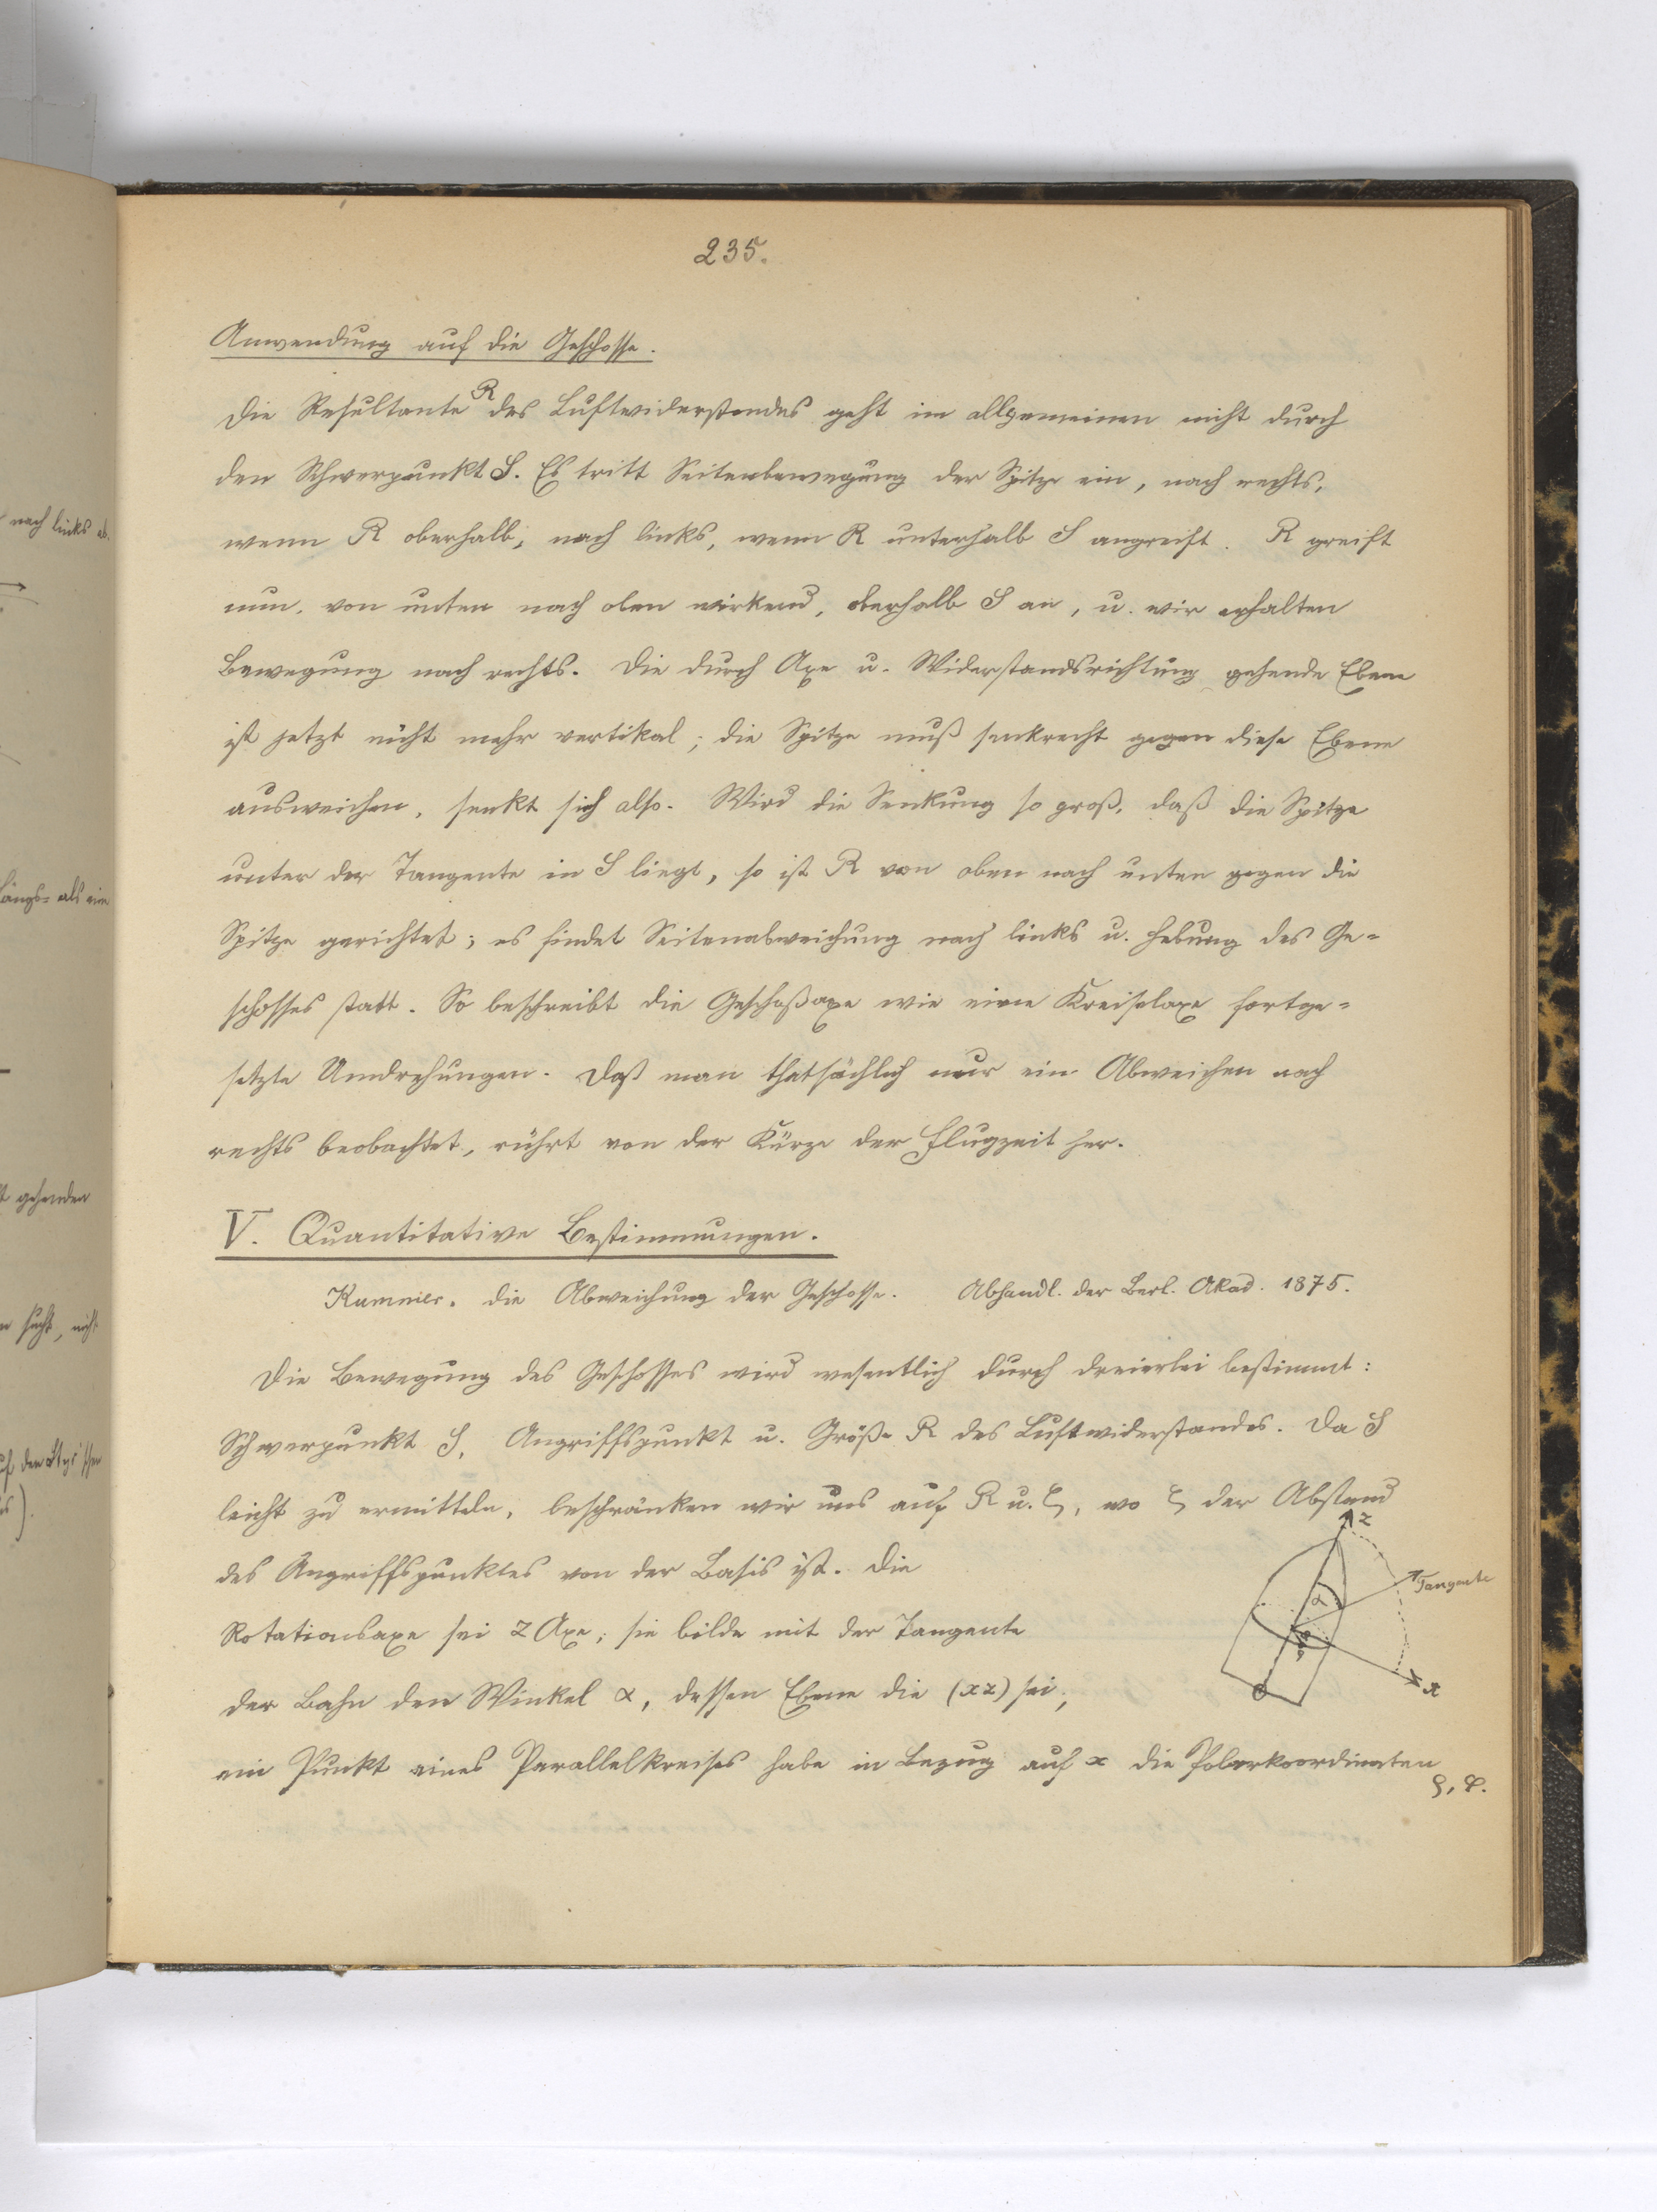 235.
Anwendung auf die Geschosse.
Die Resultante R des Luftwiderstandes geht im allgemeinen nicht durch
den Schwerpunkt S. Es tritt Seitenbewegung der Spitze ein, nach rechts,
wenn R oberhalb, nach links, wenn R unterhalb S angreift. R greift
nun, von unten nach oben wirkend, oberhalb S an, u. wir erhalten
Bewegung nach rechts. Die durch Axe u. Widerstandsrichtung gehende Ebene
ist jetzt nicht mehr vertikal; die Spitze muß senkrecht gegen diese Ebene
ausweichen, senkt sich also. Wird die Senkung so groß, daß die Spitze
unter der Tangente in S liegt, so ist R von oben nach unten gegen die
Spitze gerichtet; es findet Seitenabweichung nach links u. Hebung des Ge-
schosses statt. So beschreibt die Geschoßaxe wie eine Kreiselaxe fortge-
setzte Umdrehungen. Daß man thatsächlich nur ein Abweichen nach
rechts beobachtet, rührt von der Kürze der Flugzeit her.
V. Quantitative Bestimmungen.
Kummer. Die Abweichung der Geschosse. Abhandl. der Berl. Akad. 1875.
Die Bewegung des Geschosses wird wesentlich durch dreierlei bestimmt:
Schwerpunkt S, Angriffspunkt u. Größe R des Luftwiderstandes. Da S
leicht zu ermitteln, beschränken wir uns auf R u. ζ, wo ζ der Abstand
des Angriffspunktes von der Basis ist. Die
Rotationsaxe sei z Axe; sie bilde mit der Tangente
der Bahn den Winkel α, dessen Ebene die (xz) sei;
ein Punkt eines Parallelkreises habe in Bezug auf x die Polarkoordinaten
ρ, φ.
z
Tangente
α
x
nach links ab.
Längs- als eine
gehenden
sucht, nicht
auf den